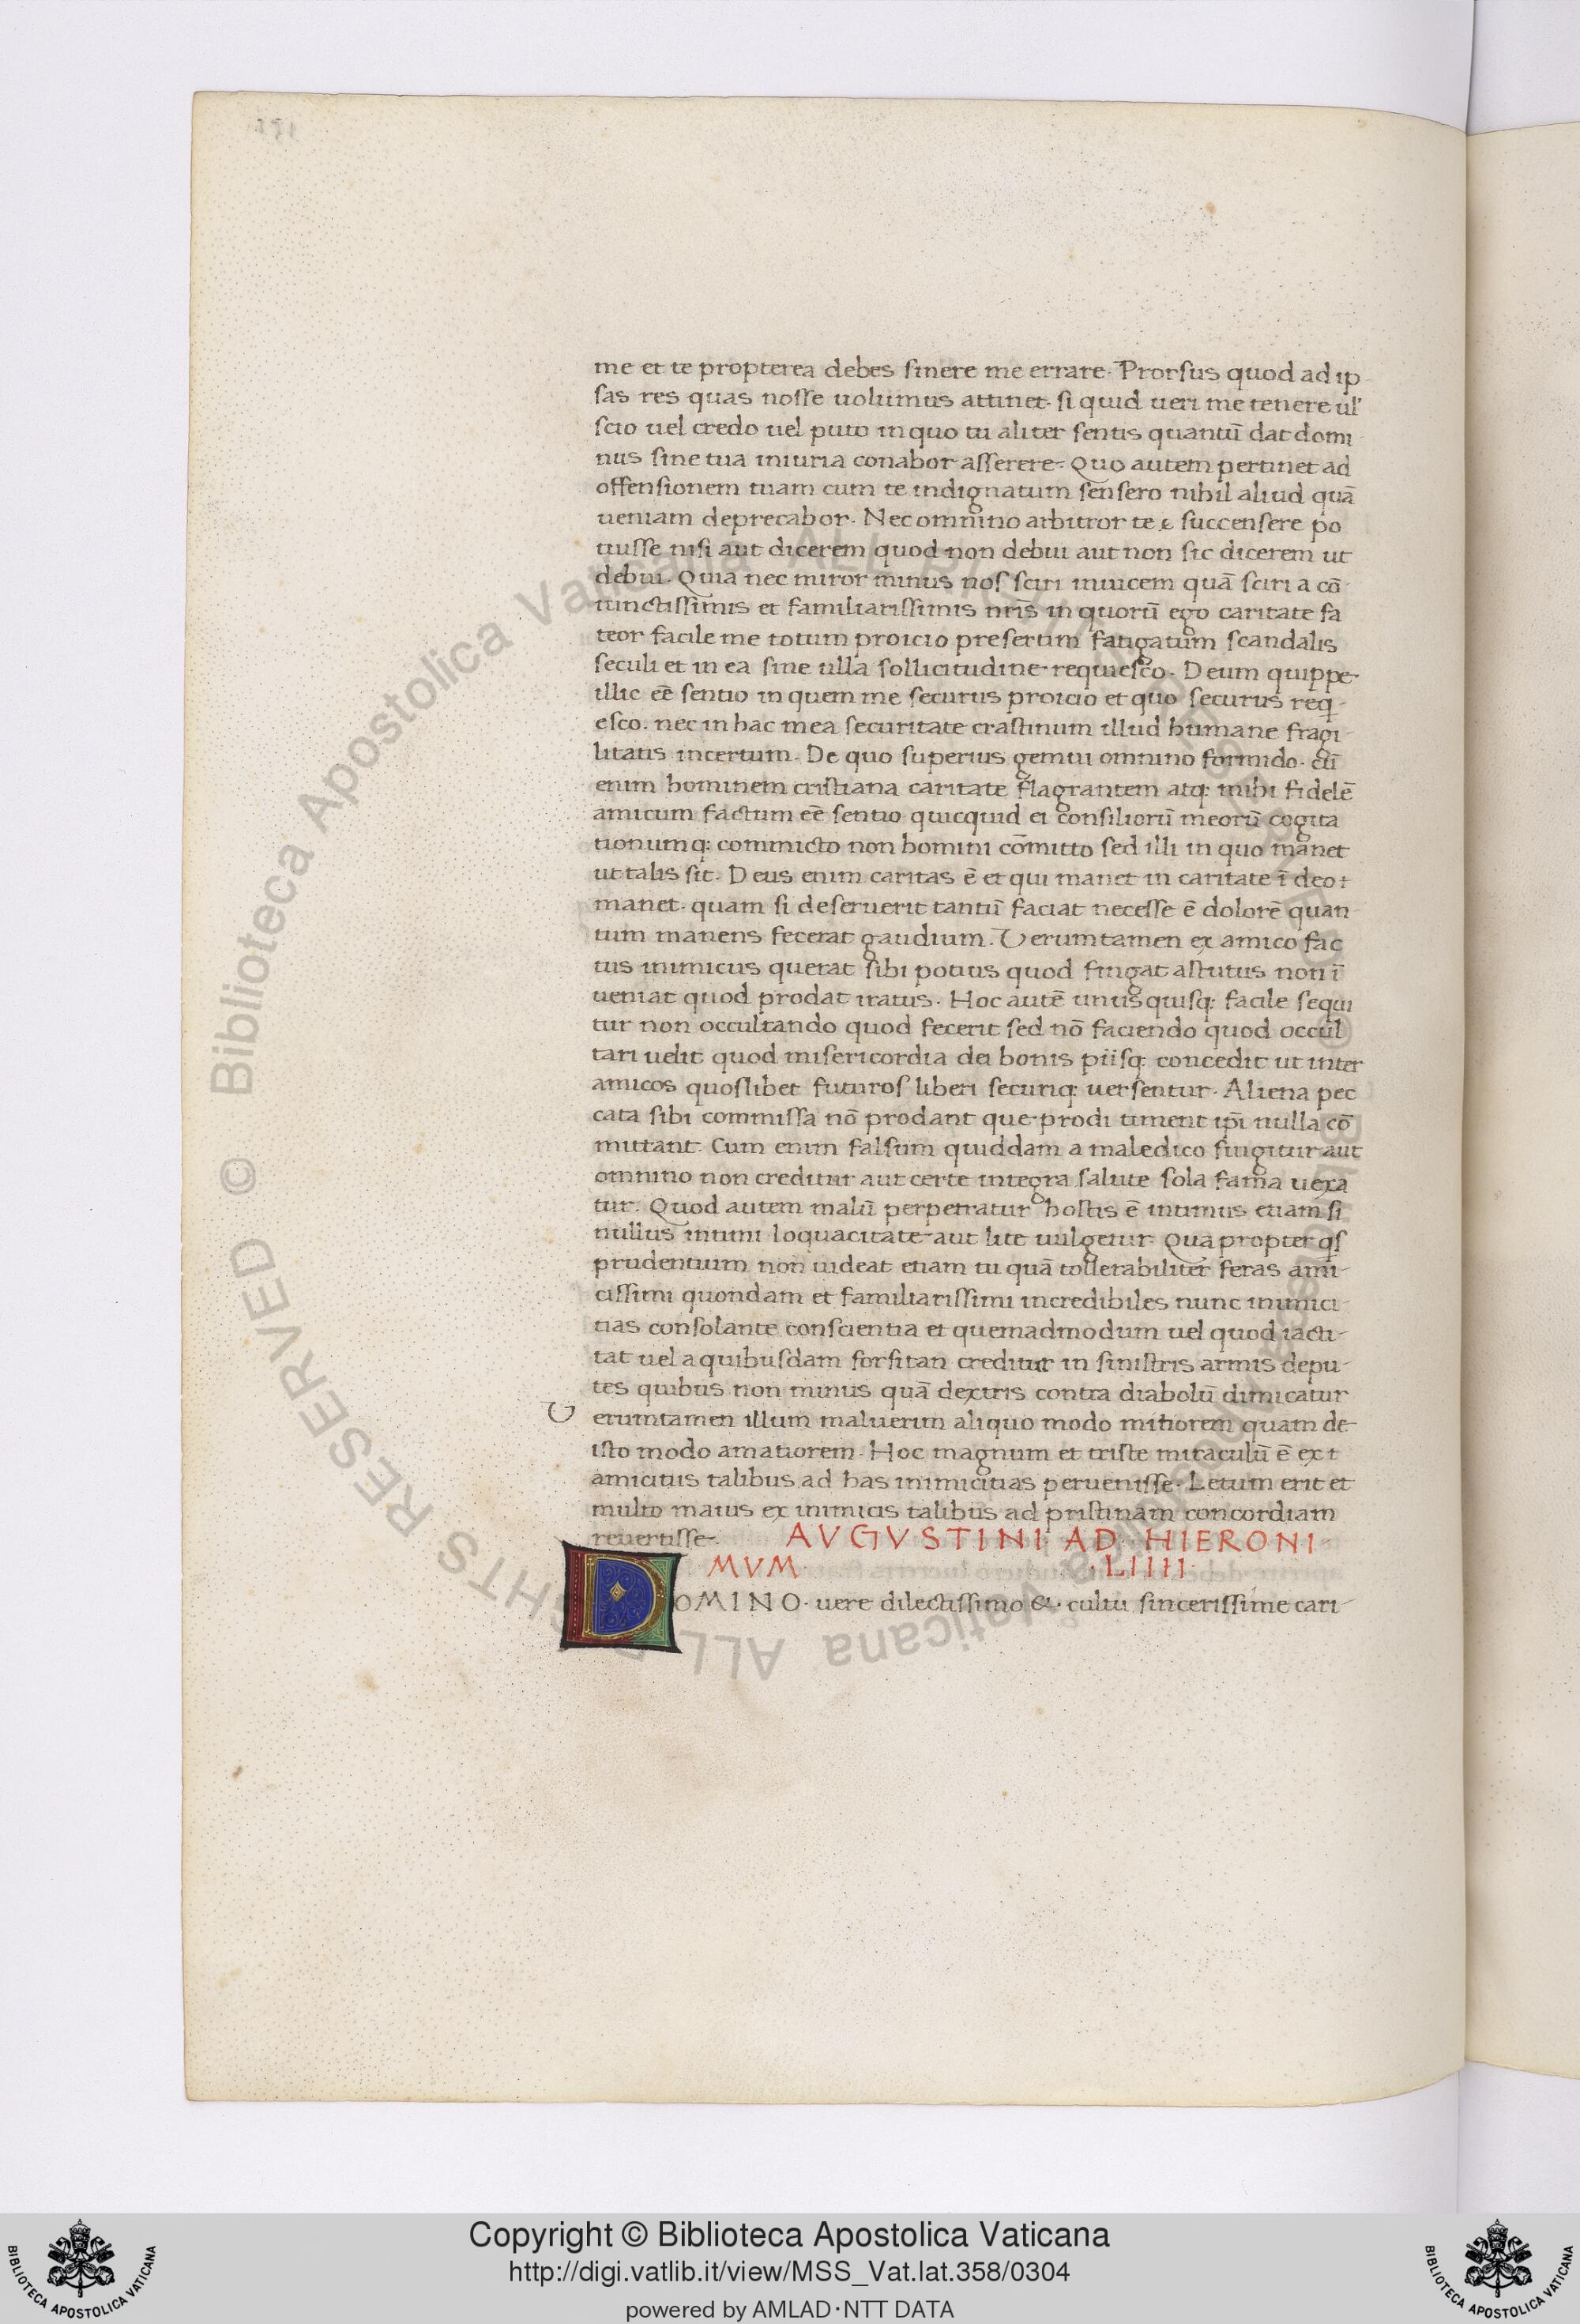 me et te propterea debes sinere me errare. Prorsus quod ad ip
sas res quas nosse uolumus attinet. si quid ueri me tenere ul'
scio uel credo uel puto in quo tu aliter sentis quantū dat domi
nus sine tua iniuria conabor asserere. Quo autem pertinet ad
offensionem tuam cum te indignatum sensero nihil aliud quā
ueniam deprecabor. Nec omnino arbitror te succensere po
tuisse nisi aut dicerem quod non debui aut non sic dicerem ut
debui. Quia nec miror minus nos sciri inuicem quā sciri a cō
iunctissimis et familiarissimis nrīs in quorū ego caritate fa
teor facile me totum proicio presertim fatigatum scandalis
seculi et in ea sine ulla sollicitudine requiesco. Deum quippe
illic eē sentio in quem me securus proicio et quo securus req
esco. nec in hac mea securitate crastinum illud humane fragi
litatis incertum. De quo superius gemui omnino formido. cū
enim hominem cristiana caritate flagrantem atq: mihi fidelē
amicum factum eē sentio quicquid ei consiliorū meorū cogita
tionumq: commicto non homini cōmitto sed illi in quo manet
ut talis sit. Deus enim caritas ē et qui manet in caritate ī deo
manet. quam si deseruerit tantū faciat necesse ē dolorē quan
tum manens fecerat gaudium. Verumtamen ex amico fac
tus inimicus querat sibi potius quod fingat astutus non ī
ueniat quod prodat iratus. Hoc autē unusquisq: facile sequi
tur non occultando quod fecerit sed nō faciendo quod occul
tari uelit quod misericordia dei bonis piisq: concedit ut inter
amicos quoslibet futuros liberi securiq: uersentur. Aliena pec
cata sibi commissa nō prodant que prodi timent ipī nulla cō
mittant. Cum enim falsum quiddam a maledico fingitur aut
omnino non creditur aut certe integra salute sola fama uexa
tur. Quod autem malū perpetratur hostis ē intimus etiam si
nullius intimi loquacitate aut lite uulgetur. Qua propter qs
prudentium non uideat etiam tu quā tollerabiliter feras ami
cissimi quondam et familiarissimi incredibiles nunc inimici
tias consolante conscientia et quemadmodum uel quod iacti
tat uel a quibusdam forsitan creditur in sinistris armis depu
tes quibus non minus quā dextris contra diabolū dimicatur
Verumtamen illum maluerim aliquo modo mitiorem quam de
isto modo amatiorem. Hoc magnum et triste miraculū ē ex
amicitiis talibus ad has inimicitias peruenisse. Letum erit et
multo maius ex inimicis talibus ad pristinam concordiam
reuertisse.
AVGVSTINI AD HIERONI
MVM. .LIIII.
DOMINO. uere dilectissimo &. cultu sincerissime cari
© Biblioteca Apostolica Vaticana ALL RIGHTS RESERVED © Biblioteca Apostolica Vaticana ALL RIGHTS RESERVED
Copyright © Biblioteca Apostolica Vaticana
http://digi.vatlib.it/view/MSS_Vat.lat.358/0304
powered by AMLAD·NTT DATA
BIBLIOTECA APOSTOLICA VATICANA
BIBLIOTECA APOSTOLICA VATICANA